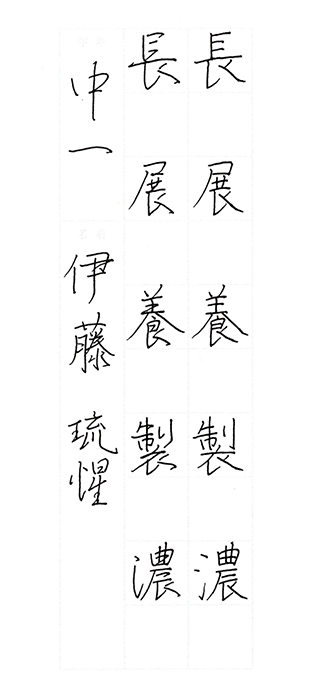 長展養製濃
長展養製濃
中一 伊藤琉惺